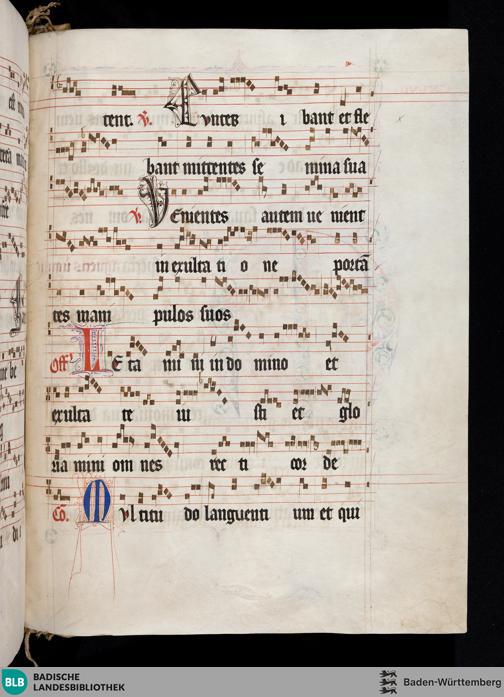 tent. v. Euntes i bant et fle
bant mittentes se mina sua
v. Venientes autem ve nient
in exulta ti o ne portā
tes mani pulos suos
Off' Le ta mi ni in do mino et
exulta te iu sti et glo
ria mini om nes rec ti cor de
Co. Multitu do languenti um et qui
BLB BADISCHE
LANDESBIBLIOTHEK
Baden-Württemberg